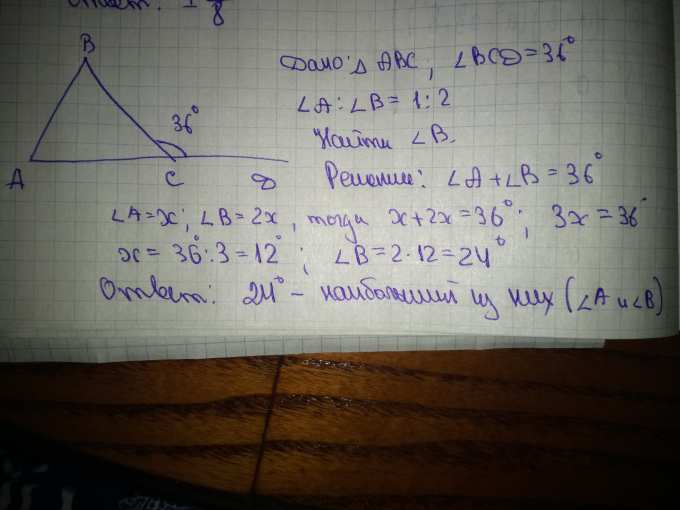 Ответ: 1/8
B
36°
A
C
D
Дано: △ ABC, ∠BCD = 36°
∠A : ∠B = 1 : 2
Найти ∠B.
Решение: ∠A + ∠B = 36°
∠A = x; ∠B = 2x, тогда x + 2x = 36°; 3x = 36°
x = 36° : 3 = 12°; ∠B = 2 · 12 = 24°
Ответ: 24° – наибольший из них (∠A и ∠B)